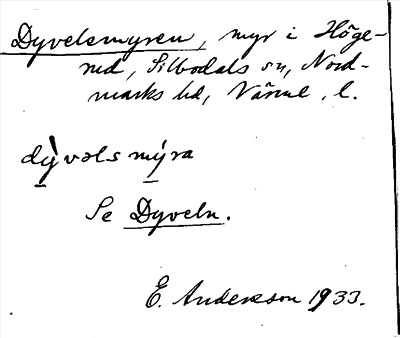 Dyvelsmyren, myr i Höge-
rud, Silbodals sn, Nord-
marks hd, Värml. l.
dỳvəls mýra
Se Dyveln.
E. Andersson 1933.